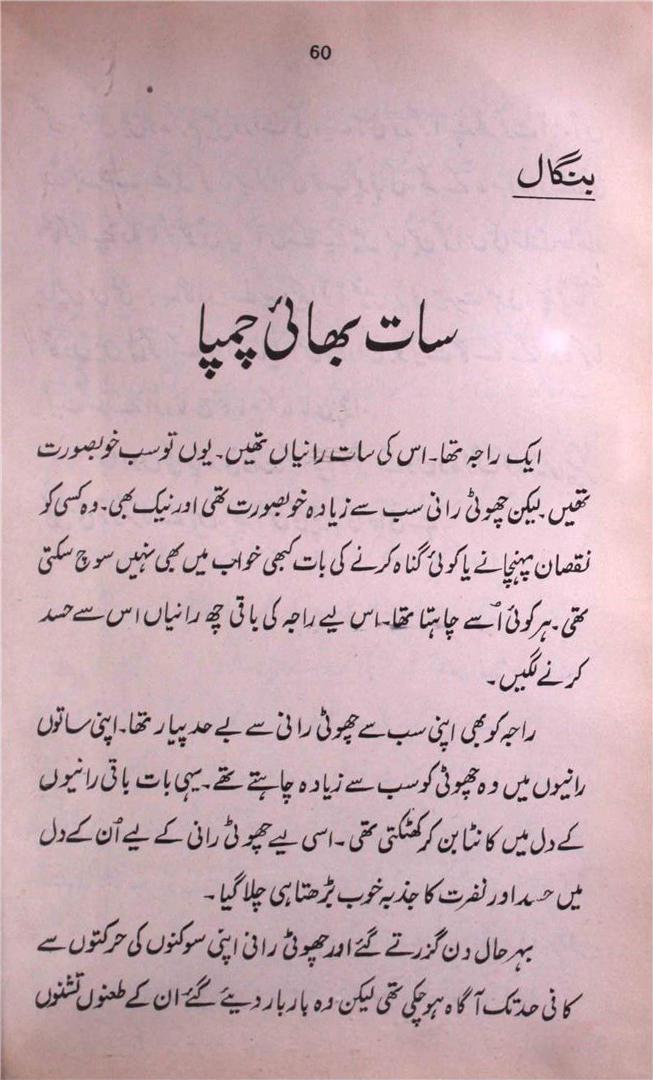 60
بنگال
سات بھائی چمپا
ایک راجہ تھا۔ اس کی سات رانیاں تھیں۔ یوں تو سب خوبصورت
تھیں۔ لیکن چھوٹی رانی سب سے زیادہ خوبصورت تھی اور نیک بھی۔ وہ کسی کو
نقصان پہنچانے یا کوئی گناہ کرنے کی بات کبھی خواب میں بھی نہیں سوچ سکتی
تھی۔ ہر کوئی اُسے چاہتا تھا۔ اس لیے راجہ کی باقی چھ رانیاں اس سے حسد
کرنے لگیں۔
راجہ کو بھی اپنی سب سے چھوٹی رانی سے بے حد پیار تھا۔ اپنی ساتوں
رانیوں میں وہ چھوٹی کو سب سے زیادہ چاہتے تھے۔ یہی بات باقی رانیوں
کے دل میں کانٹا بن کر کھٹکتی تھی۔ اسی لیے چھوٹی رانی کے لیے اُن کے دل
میں حسد اور نفرت کا جذبہ خوب بڑھتا ہی چلا گیا۔
بہر حال دن گزرتے گئے اور چھوٹی رانی اپنی سوکنوں کی حرکتوں سے
کافی حد تک آگاہ ہو چکی تھی لیکن وہ بار بار دیئے گئے ان کے طعنوں تشنوں